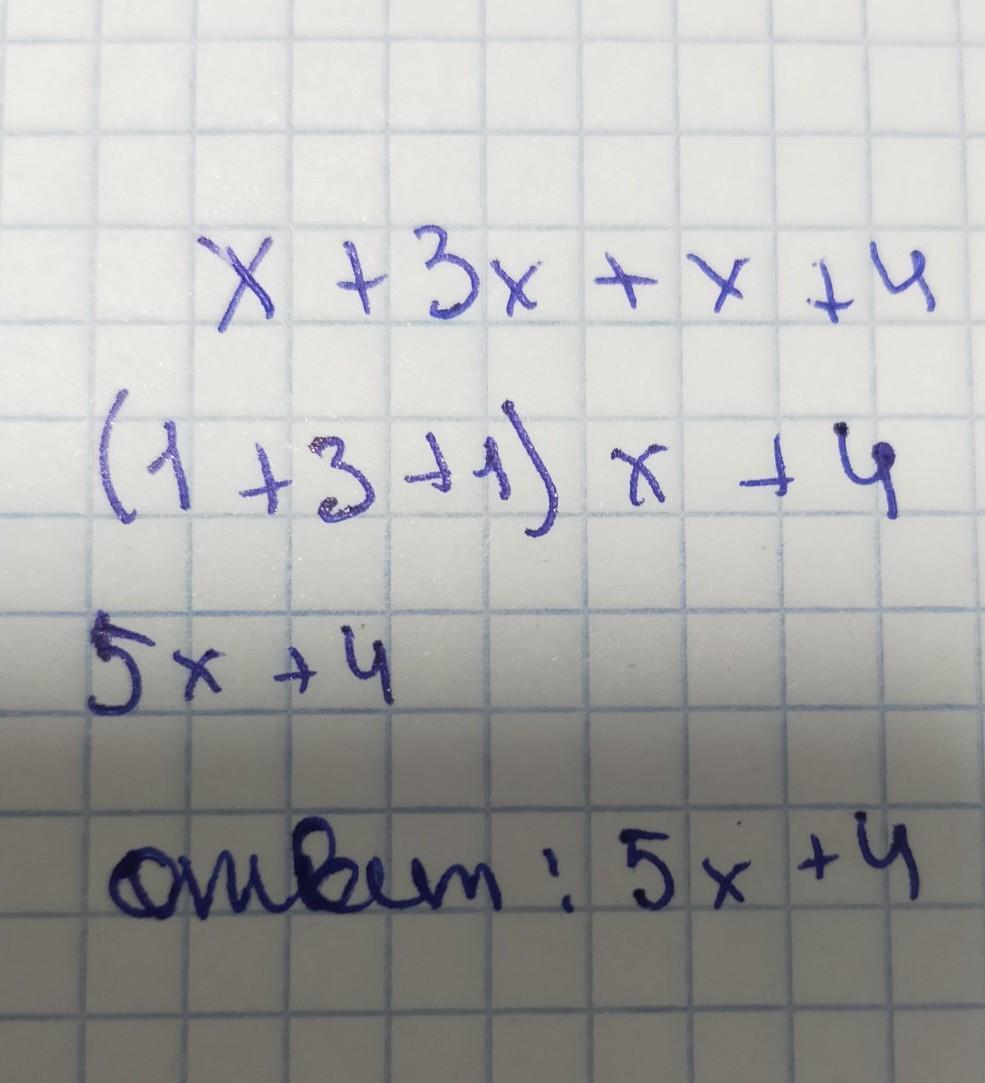 x + 3x + x + 4
(1 + 3 + 1) x + 4
5x + 4
ответ: 5x + 4